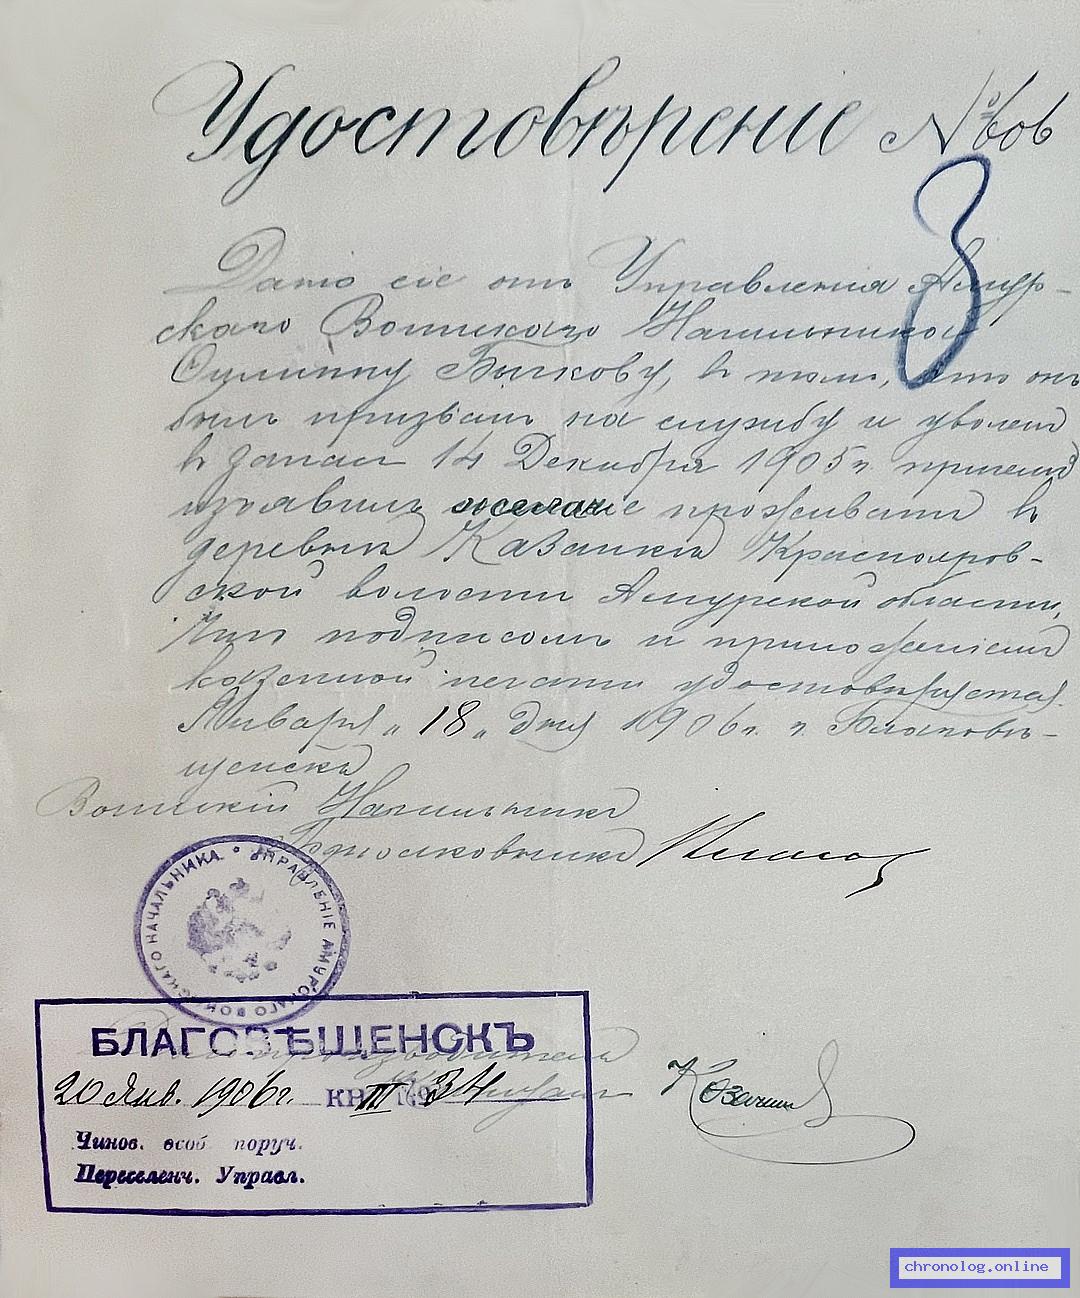 Удостовѣреніе № 606
3
Дано сіе отъ Управленія Амур-
скаго Воинскаго Начальника
Бычкову, въ томъ, что онъ
былъ призванъ на службу и уволенъ
въ запасъ 14 Декабря 1905 г. причемъ
изъявилъ желаніе проживать въ
деревнѣ Казанкѣ Краснояров-
ской волости Амурской области,
Что подписомъ и приложеніемъ
казенной печати удостовѣряется.
Января „18„ дня 1906 г. г. Благовѣ-
щенскъ
Воинскій Начальникъ
Подполковникъ
УПРАВЛЕНІЕ АМУРСКАГО ВОИНСКАГО НАЧАЛЬНИКА
Дѣлопроизводитель
БЛАГОВѢЩЕНСКЪ
20 Янв. 1906 г. КН III № 34
Чинов. особ. поруч.
Переселенч. Управл.
chronolog.online